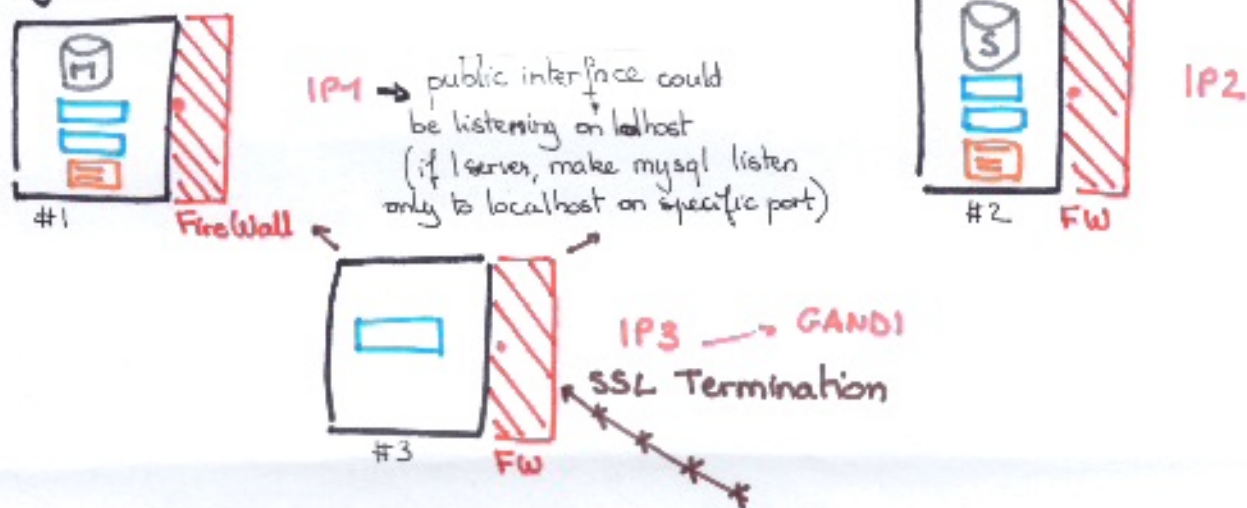 M
S
IP1 → public interface could
be listening on localhost
(if 1 server, make mysql listen
only to localhost on specific port)
IP2
#1
FireWall
#2
FW
IP3 → GANDI
SSL Termination
#3
FW